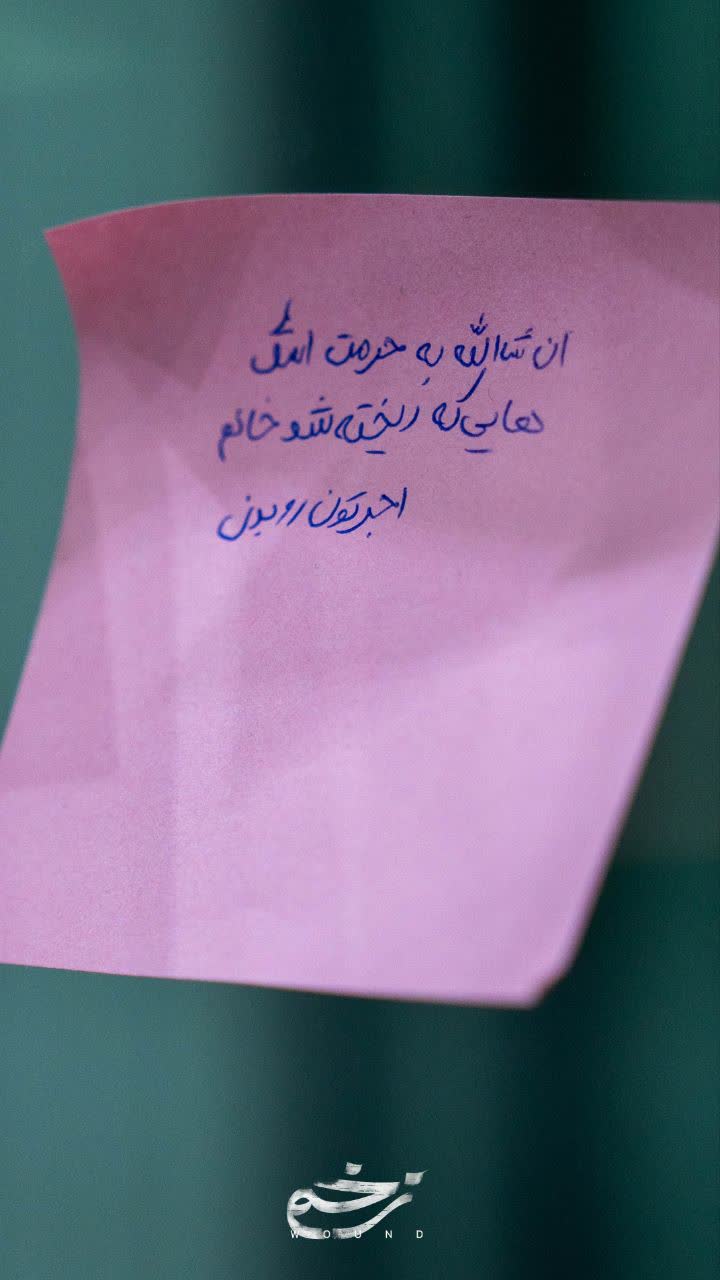 ان شاالله به حرمت اشک
هایی که ریخته شد خانم
اجرتون رو بدن
زخم
WOUND